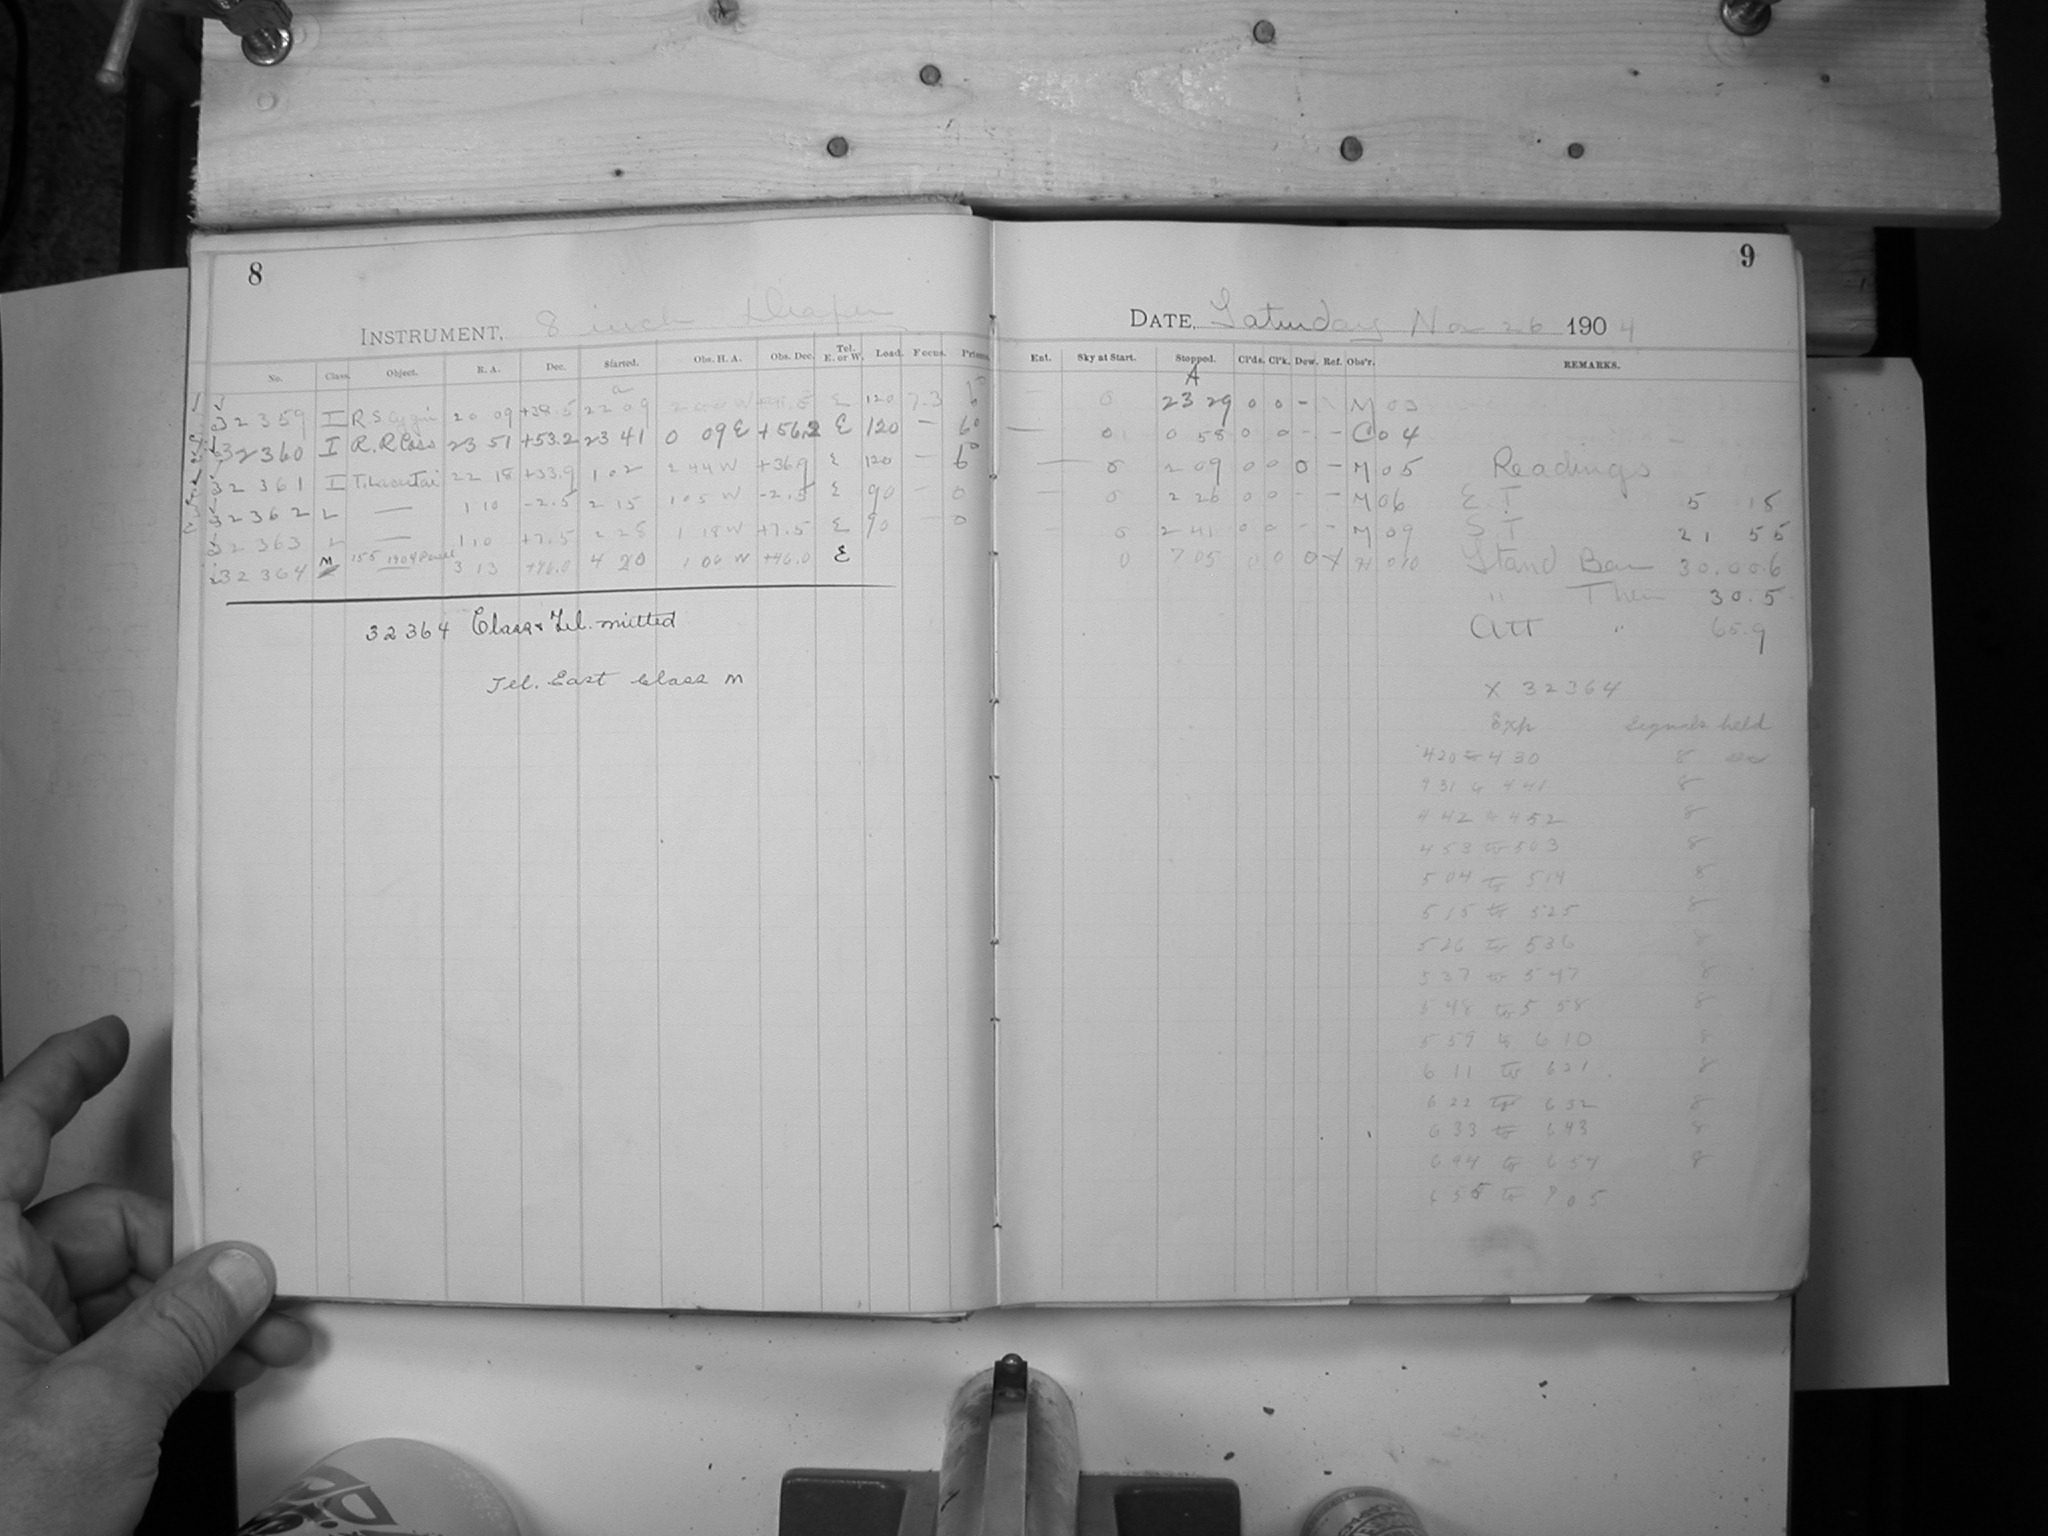 8
INSTRUMENT, 8 inch Draper
No. Class. Object. R. A. Dec. Started. Obs. H. A. Obs. Dec. Tel. E. or W. Load. Focus. Prisms.
32359 I R.S Cygni 20 09 +38.5 22 09 E 120 7.3
32360 I R.R Cass 23 51 +53.2 23 41 0 09 E +56.2 E 120 —
32361 I T. Lacertae 22 18 +33.9 1 02 2 44 W +36.9 E 120 —
32362 L — 1 10 -2.5 2 15 1 05 W -2.5 E 90 - 0
32363 L — 1 10 +7.5 2 28 1 18 W +7.5 E 90 - 0
32364 M 155 1904 3 13 +46.0 4 20 1 06 W +46.0 E
32364 Class & Tel. mitted
Tel. East Class M
9
DATE, Saturday Nov 26 1904
Ent. Sky at Start. Stopped. Cl'ds. Cl'k. Dew. Ref. Obs'r. REMARKS.
A
23 29 0 0 - M 03
0 58 0 0 - - C 04
— 0 2 09 0 0 0 - M 05 Readings
— 0 2 26 0 0 - - M 06 E. T 5 18
— 0 2 41 0 0 - - M 09 S T 21 55
0 7 05 0 0 0 X Stand Bar 30.006
" Ther 30.5
Att " 65.9
X 32364
Exp Signals held
4 20 to 4 30 8
4 31 to 4 41 8
4 42 to 4 52 8
4 53 to 5 03 8
5 04 to 5 14 8
5 15 to 5 25 8
5 26 to 5 36 8
5 37 to 5 47 8
5 48 to 5 58 8
5 59 to 6 10 8
6 11 to 6 21 8
6 22 to 6 32 8
6 33 to 6 43 8
6 44 to 6 54 8
6 55 to 7 05